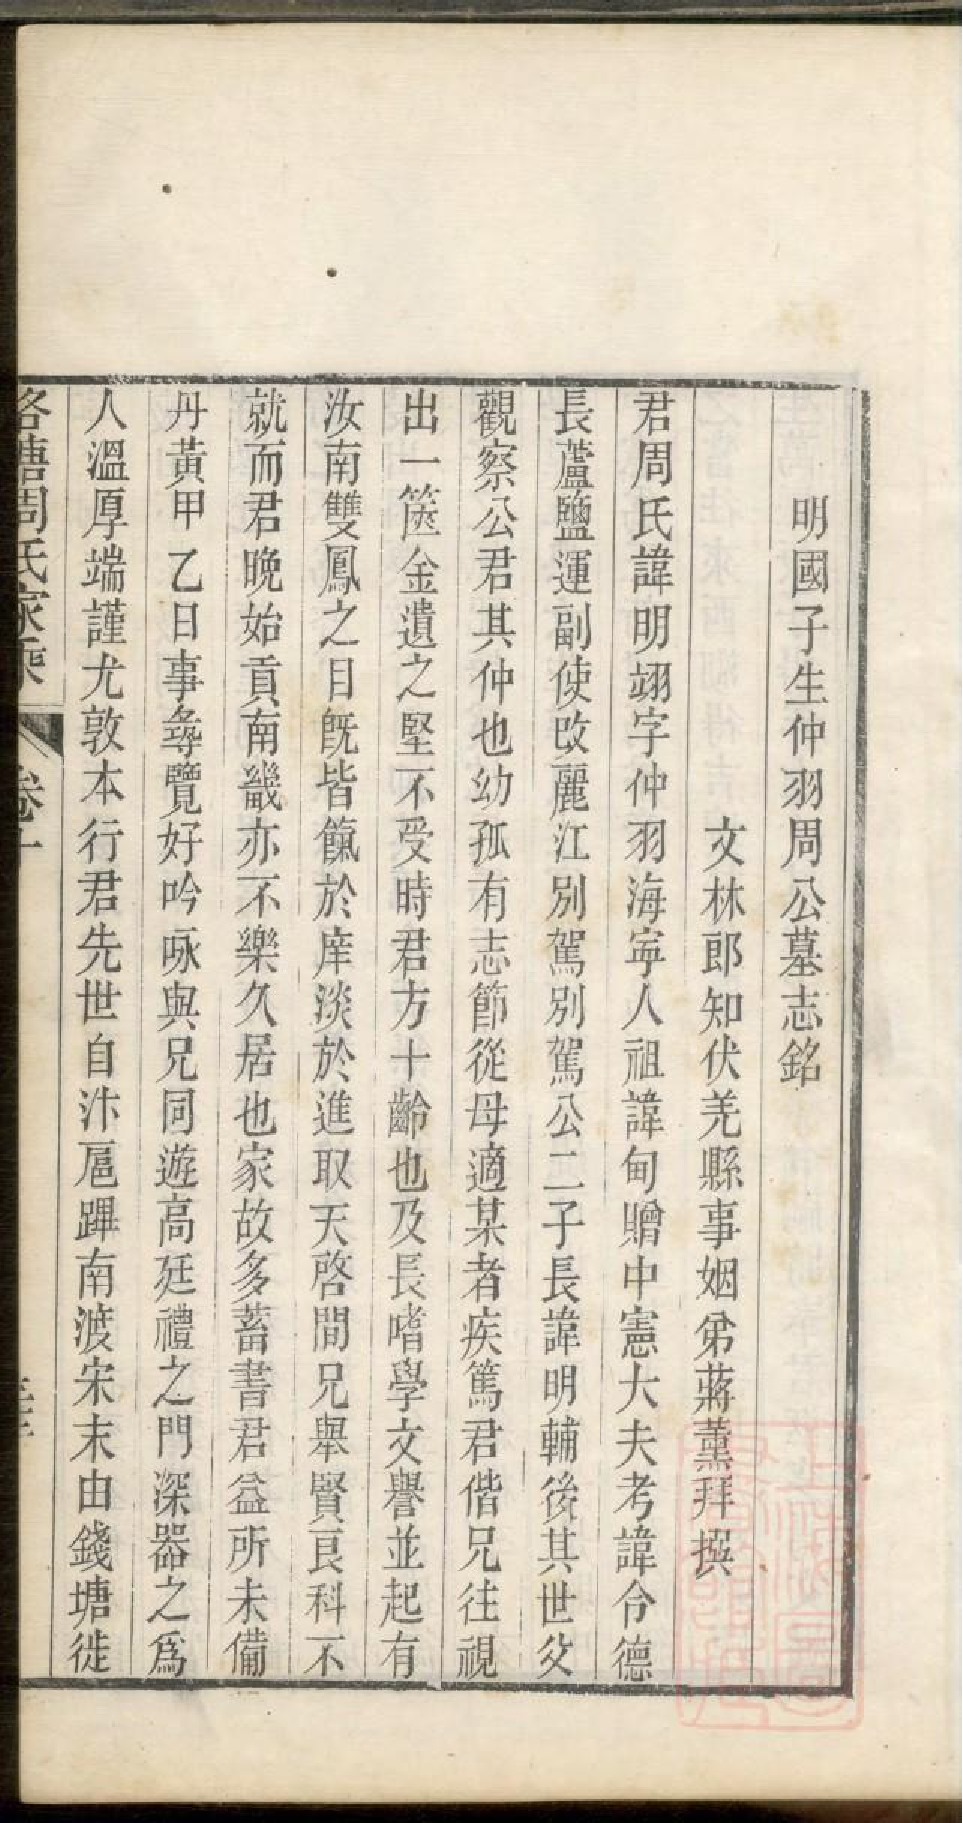 明國子生仲羽周公墓志銘
文林郎知伏羌縣事姻弟蔣薰拜撰
君周氏諱明翊字仲羽海寕人祖諱甸贈中憲大夫考諱令德
長蘆鹽運副使改麗江別駕別駕公二子長諱明輔後其世父
觀察公君其仲也幼孤有志節從母適某者疾篤君偕兄往視
出一篋金遺之堅不受時君方十齡也及長嗜學文譽並起有
汝南雙鳳之目旣皆餼於庠淡於進取天啓間兄舉賢良科不
就而君晚始貢南畿亦不樂久居也家故多蓄書君益所未備
丹黃甲乙日事尋覽好吟咏與兄同遊高廷禮之門深器之爲
人溫厚端謹尤敦本行君先世自汴扈蹕南渡宋末由錢塘徙
洛塘周氏家乘 卷十